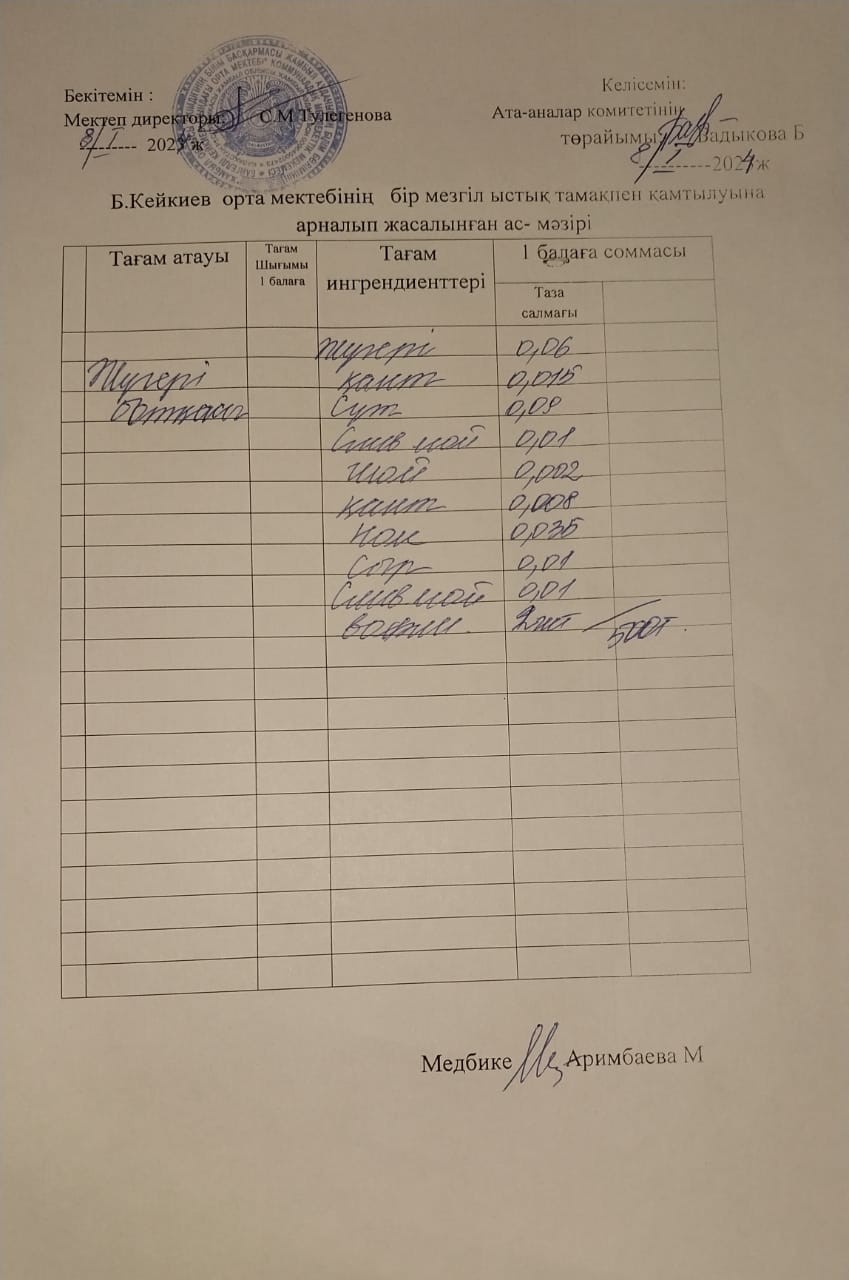 Бекітемін :
Мектеп директоры: С.М Тулегенова
8/I 2024 ж
Келісемін:
Ата-аналар комитетінің
төрайымы Бадыкова Б
8/I ----------2024 ж
Б.Кейкиев орта мектебінің бір мезгіл ыстық тамақпен қамтылуына
арналып жасалынған ас- мәзірі
Тағам атауы
Тағам
Шығымы
1 балаға
Тағам
ингрендиенттері
1 балаға соммасы
Таза
салмағы
Жүгері 0,06
Жүгері қант 0,015
ботқасы Сүт 0,09
Слив май 0,01
Шай 0,002
қант 0,008
Нан 0,035
Сыр 0,01
Слив май 0,01
вафли. 2шт
Медбике Аримбаева М